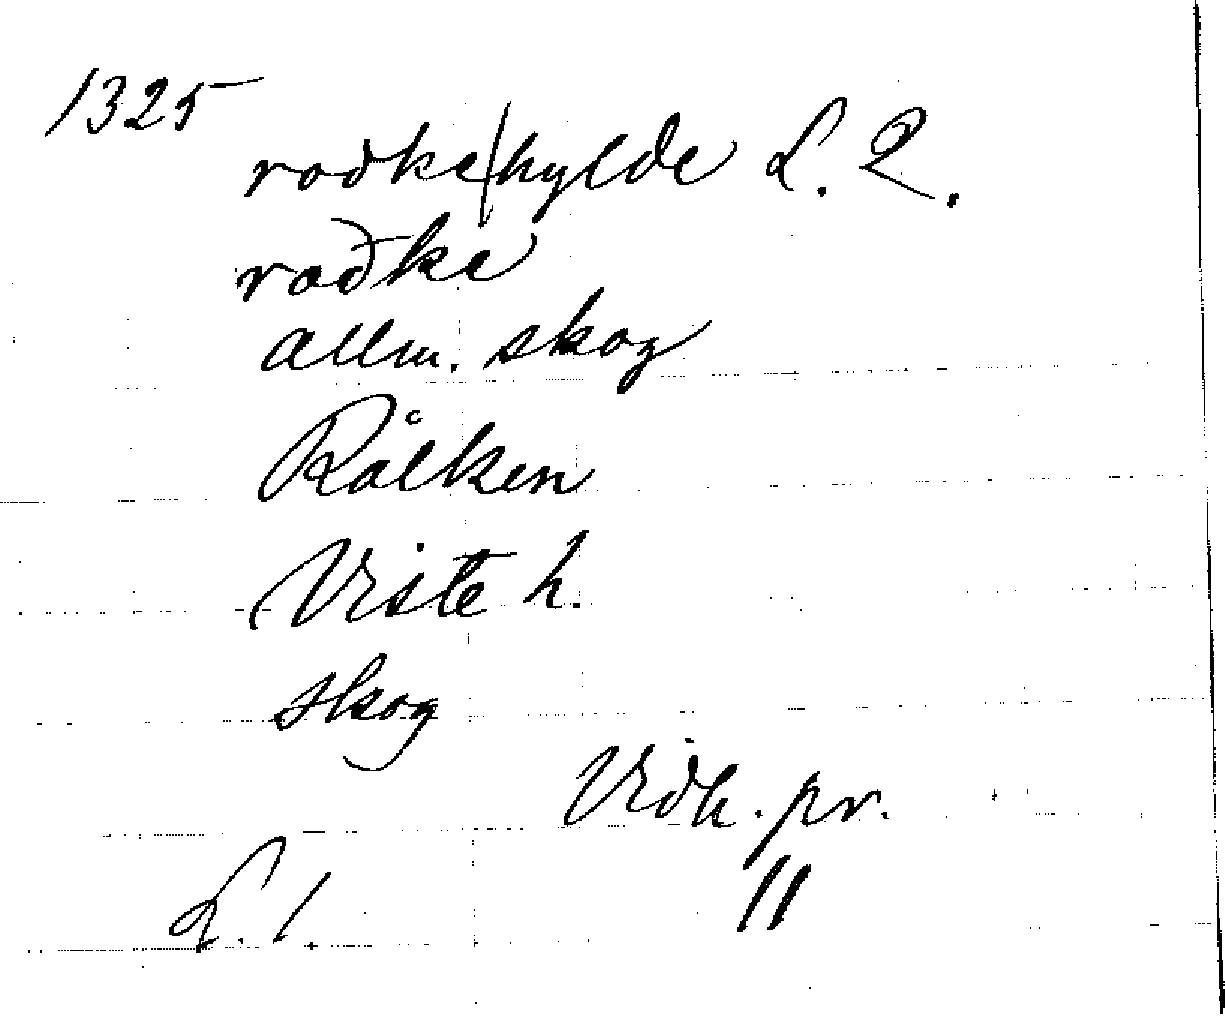 1325
rodke/hylde L. 2.
rodke
allm. skog
Rålken
Viste h.
skog
Vidh. pr.
L. 1.
11